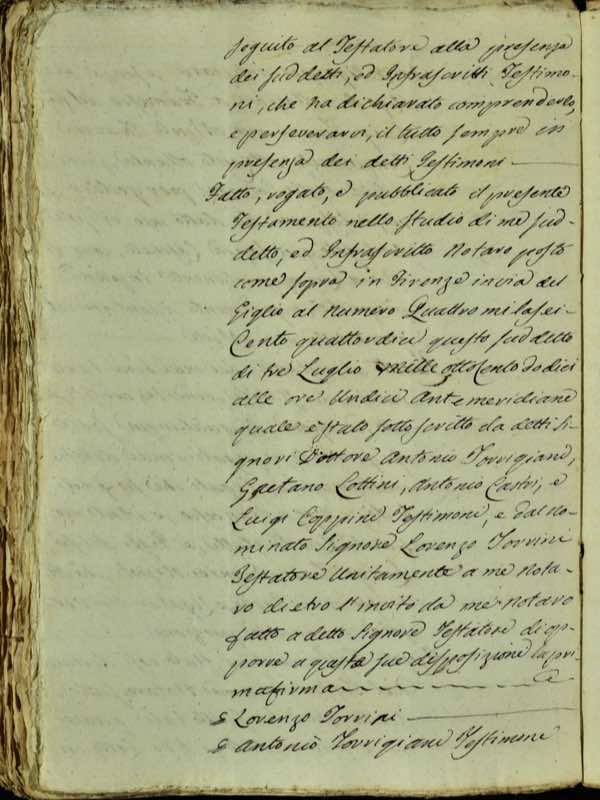 seguito al Testatore alla presenza
dei suddetti, ed Infrascritti Testimo-
ni, che ha dichiarato comprenderlo,
e perseverarvi, il tutto sempre in
presenza dei detti Testimoni
Fatto, rogato, e pubblicato il presente
Testamento nello studio di me sud-
detto, ed Infrascritto Notaro posto
come sopra in Firenze in via del
Giglio al numero Quattro mila sei-
Cento quattordici questo suddetto
dì tre Luglio mille otto Cento dodici
alle ore Undici Antemeridiane
quale è stato sotto scritto da detti Si-
gnori Dottore Antonio Torrigiani,
Gaetano Lottini, Antonio Castri, e
Luigi Coppini Testimoni, e dal no-
minato Signore Lorenzo Torrini
Testatore Unitamente a me Nota-
ro dietro l'invito da me Notaro
fatto a detto Signore Testatore di op-
porre a questa sue disposizione la pri-
ma firma
Lorenzo Torrini
Antonio Torrigiani Testimone